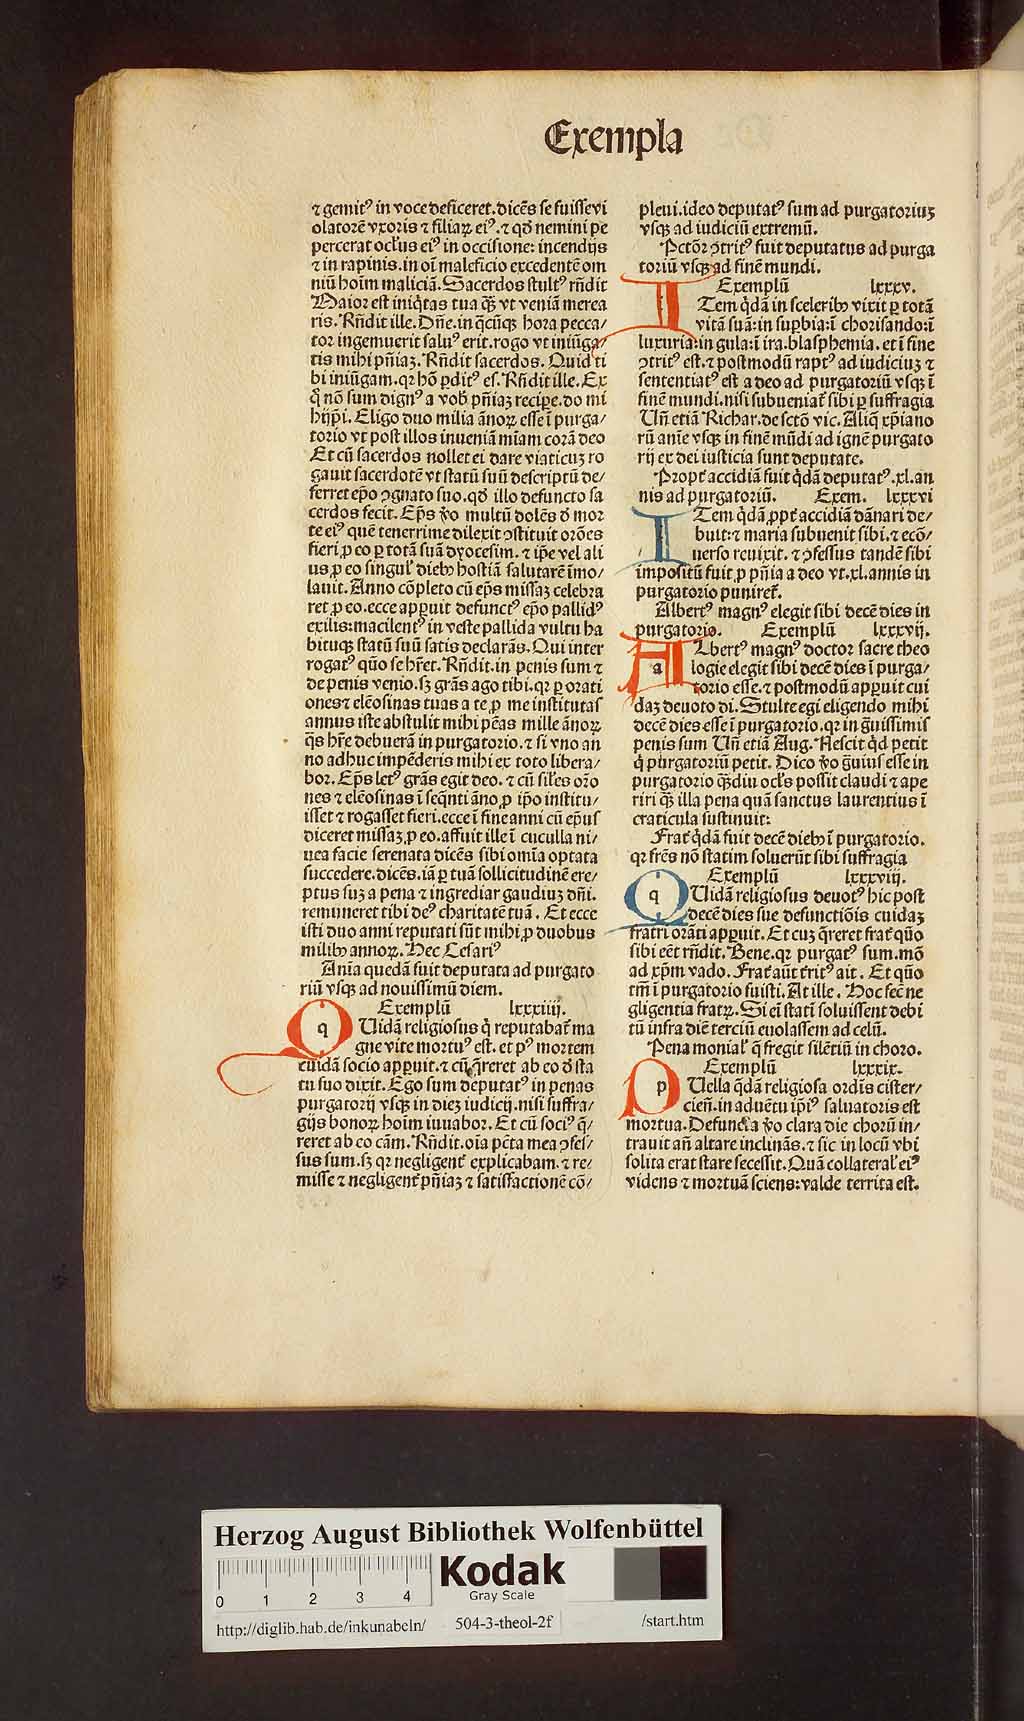 Exempla
⁊ gemitꝰ in voce deficeret. dicēs se fuisse vi
olatorē vxoris ⁊ filiaꝝ eiꝰ. ⁊ qđ nemini pe
percerat ocłus eiꝰ in occisione: incendijs
⁊ in rapinis. in oī maleficio excedentē om
niū hoīm maliciā. Sacerdos stultꝰ rñdit
Maior est iniq̇tas tua q̄ꝫ vt veniā merea
ris. Rñdit ille. Dñe. in q̇cūqꝫ hora pecca/
tor ingemuerit saluꝰ erit. rogo vt iniūga/
tis mihi pñiaꝫ. Rñdit sacerdos. Quid ti
bi iniūgam. qꝛ hō ꝑditꝰ es. Rñdit ille. Ex
q̇ nō sum dignꝰ a vob̄ pñiaꝫ recipe. do mi
hijp̄i. Eligo duo milia ānoꝝ esse ī purga/
torio vt post illos inueniā mīam corā deo
Et cū sacerdos nollet ei dare viaticuꝫ ro
gauit sacerdotē vt statū suū descriptū de/
ferret ep̄o ꝯgnato suo. qđ illo defuncto sa
cerdos fecit. Ep̄s v̊o multū dolēs đ mor
te eiꝰ quē tenerrime dilexit ꝯstituit orōes
fieri ꝓ eo ꝑ totā suā dyocesim. ⁊ ip̄e vel ali
us ꝓ eo singuł dieb̄ hostiā salutarē īmo/
lauit. Anno cōpleto cū ep̄s missaꝫ celebra
ret ꝓ eo. ecce apparuit defunctꝰ ep̄o pallidꝰ
exilis: macilentꝰ in veste pallida vultu ha
bituqꝫ statū suū satis declarās. Qui inter
rogatꝰ quō se hr̄et. Rñdit. in penis sum ⁊
de penis venio. sꝫ gr̄as ago tibi. qꝛ ꝑ orati
ones ⁊ elēosinas tuas a te ꝓ me institutas
annus iste abstulit mihi pēas mille ānoꝝ
q̇s hr̄e debuerā in purgatorio. ⁊ si vno an
no adhuc impēderis mihi ex toto libera/
bor. Ep̄s letꝰ gr̄as egit deo. ⁊ cū siłes orō
nes ⁊ elēosinas ī seq̄nti āno ꝓ ip̄o institu/
isset ⁊ rogasset fieri. ecce ī fine anni cū ep̄us
diceret missaꝫ ꝓ eo. affuit ille ī cuculla ni/
uea facie serenata dicēs sibi omīa optata
succedere. dicēs. iā ꝑ tuā sollicitudinē ere/
ptus suꝫ a pena ⁊ ingrediar gaudiuꝫ dñi.
remuneret tibi deꝰ charitatē tuā. Et ecce
isti duo anni reputati sūt mihi ꝓ duobus
milib̄ annoꝝ. Hec Cesariꝰ
Ania quedā fuit deputata ad purgato
riū vsqꝫ ad nouissimū diem.
Exemplū lxxxiiij.
q Uidā religiosus q̇ reputabat̄ ma
gne vite mortuꝰ est. et pꝰ mortem
cuidā socio apparuit. ⁊ cū q̄reret ab eo đ sta
tu suo dixit. Ego sum deputatꝰ in penas
purgatorij vsqꝫ in dieꝫ iudicij. nisi suffra/
gijs bonoꝝ hoīm iuuabor. Et cū sociꝰ q̄/
reret ab eo cām. Rñdit. oīa pc̄ta mea ꝯfes/
sus sum. sꝫ qꝛ negligent̄ explicabam. ⁊ re/
misse ⁊ negligent̄ pñiaꝫ ⁊ satisfactionē cō/
pleui. ideo deputatꝰ sum ad purgatoriuꝫ
vsqꝫ ad iudiciū extremū.
Pctōr ꝯtritꝰ fuit deputatus ad purga
toriū vsqꝫ ad finē mundi.
Exemplū lxxxv.
I Tem q̇dā in sceleribꝫ vixit ꝑ totā
vitā suā: in suꝑbia: ī chorisando: ī
luxuria: in gula: ī ira. blasphemia. et ī fine
ꝯtritꝰ est. ⁊ postmodū raptꝰ ad iudiciuꝫ ⁊
sententiatꝰ est a deo ad purgatoriū vsqꝫ ī
finē mundi. nisi subueniat̄ sibi ꝑ suffragia
Uñ etiā Richar. de sctō vic. Aliq̄ xp̄iano
rū anīe vsqꝫ in finē mūdi ad ignē purgato
rij ex dei iusticia sunt deputate.
Propt̄ accidiā fuit q̇dā deputatꝰ .xl. an
nis ad purgatoriū. Exem. lxxxvi
I Tem q̇dā ꝓpt̄ accidiā dānari de/
buit: ⁊ maria subuenit sibi. ⁊ ecō/
uerso reuixit. ⁊ ꝯfessus tandē sibi
impositū fuit ꝓ pñia a deo vt .xl. annis in
purgatorio puniret̄.
Albertꝰ magnꝰ elegit sibi decē dies in
purgatorio. Exemplū lxxxvij.
A a Lbertꝰ magnꝰ doctor sacre theo
logie elegit sibi decē dies ī purga/
torio esse. ⁊ postmodū apparuit cui
daꝫ deuoto di. Stulte egi eligendo mihi
decē dies esse ī purgatorio. qꝛ in g̊uissimis
penis sum Uñ etiā Aug. Nescit q̇d petit
q̇ purgatoriū petit. Dico v̊o g̊uius esse in
purgatorio q̄ꝫdiu ocłs possit claudi ⁊ ape
riri q̄ꝫ illa pena quā sanctus laurentius ī
craticula sustinuit:
Frat̄ q̇dā fuit decē dieb̄ ī purgatorio.
qꝛ fr̄es nō statim soluerūt sibi suffragia
Exemplū lxxxviij.
q Uidā religiosus deuotꝰ hic post
decē dies sue defunctiōis cuidaꝫ
fratri orāti apparuit. Et cuꝫ q̄reret frat̄ quō
sibi eēt rñdit. Bene. qꝛ purgatꝰ sum. mō
ad xp̄m vado. Frat̄ aūt t̄ritꝰ ait. Et quō
tm̄ ī purgatorio fuisti. At ille. Hoc fec̄ ne
gligentia fratꝝ. Si eī statī soluissent debi
tū infra diē terciū euolassem ad celū.
Pena moniał q̄ fregit silētiū in choro.
Exemplū lxxxix.
p Uella q̄dā religiosa ordīs cister/
cieñ. in aduētu ip̄iꝰ saluatoris est
mortua. Defuncta v̊o clara die chorū in/
trauit añ altare inclinās. ⁊ sic in locū vbi
solita erat stare secessit. Quā collaterał eiꝰ
videns ⁊ mortuā sciens: valde territa est.
Herzog August Bibliothek Wolfenbüttel
0 1 2 3 4
Kodak
Gray Scale
http://diglib.hab.de/inkunabeln/ 504-3-theol-2f /start.htm